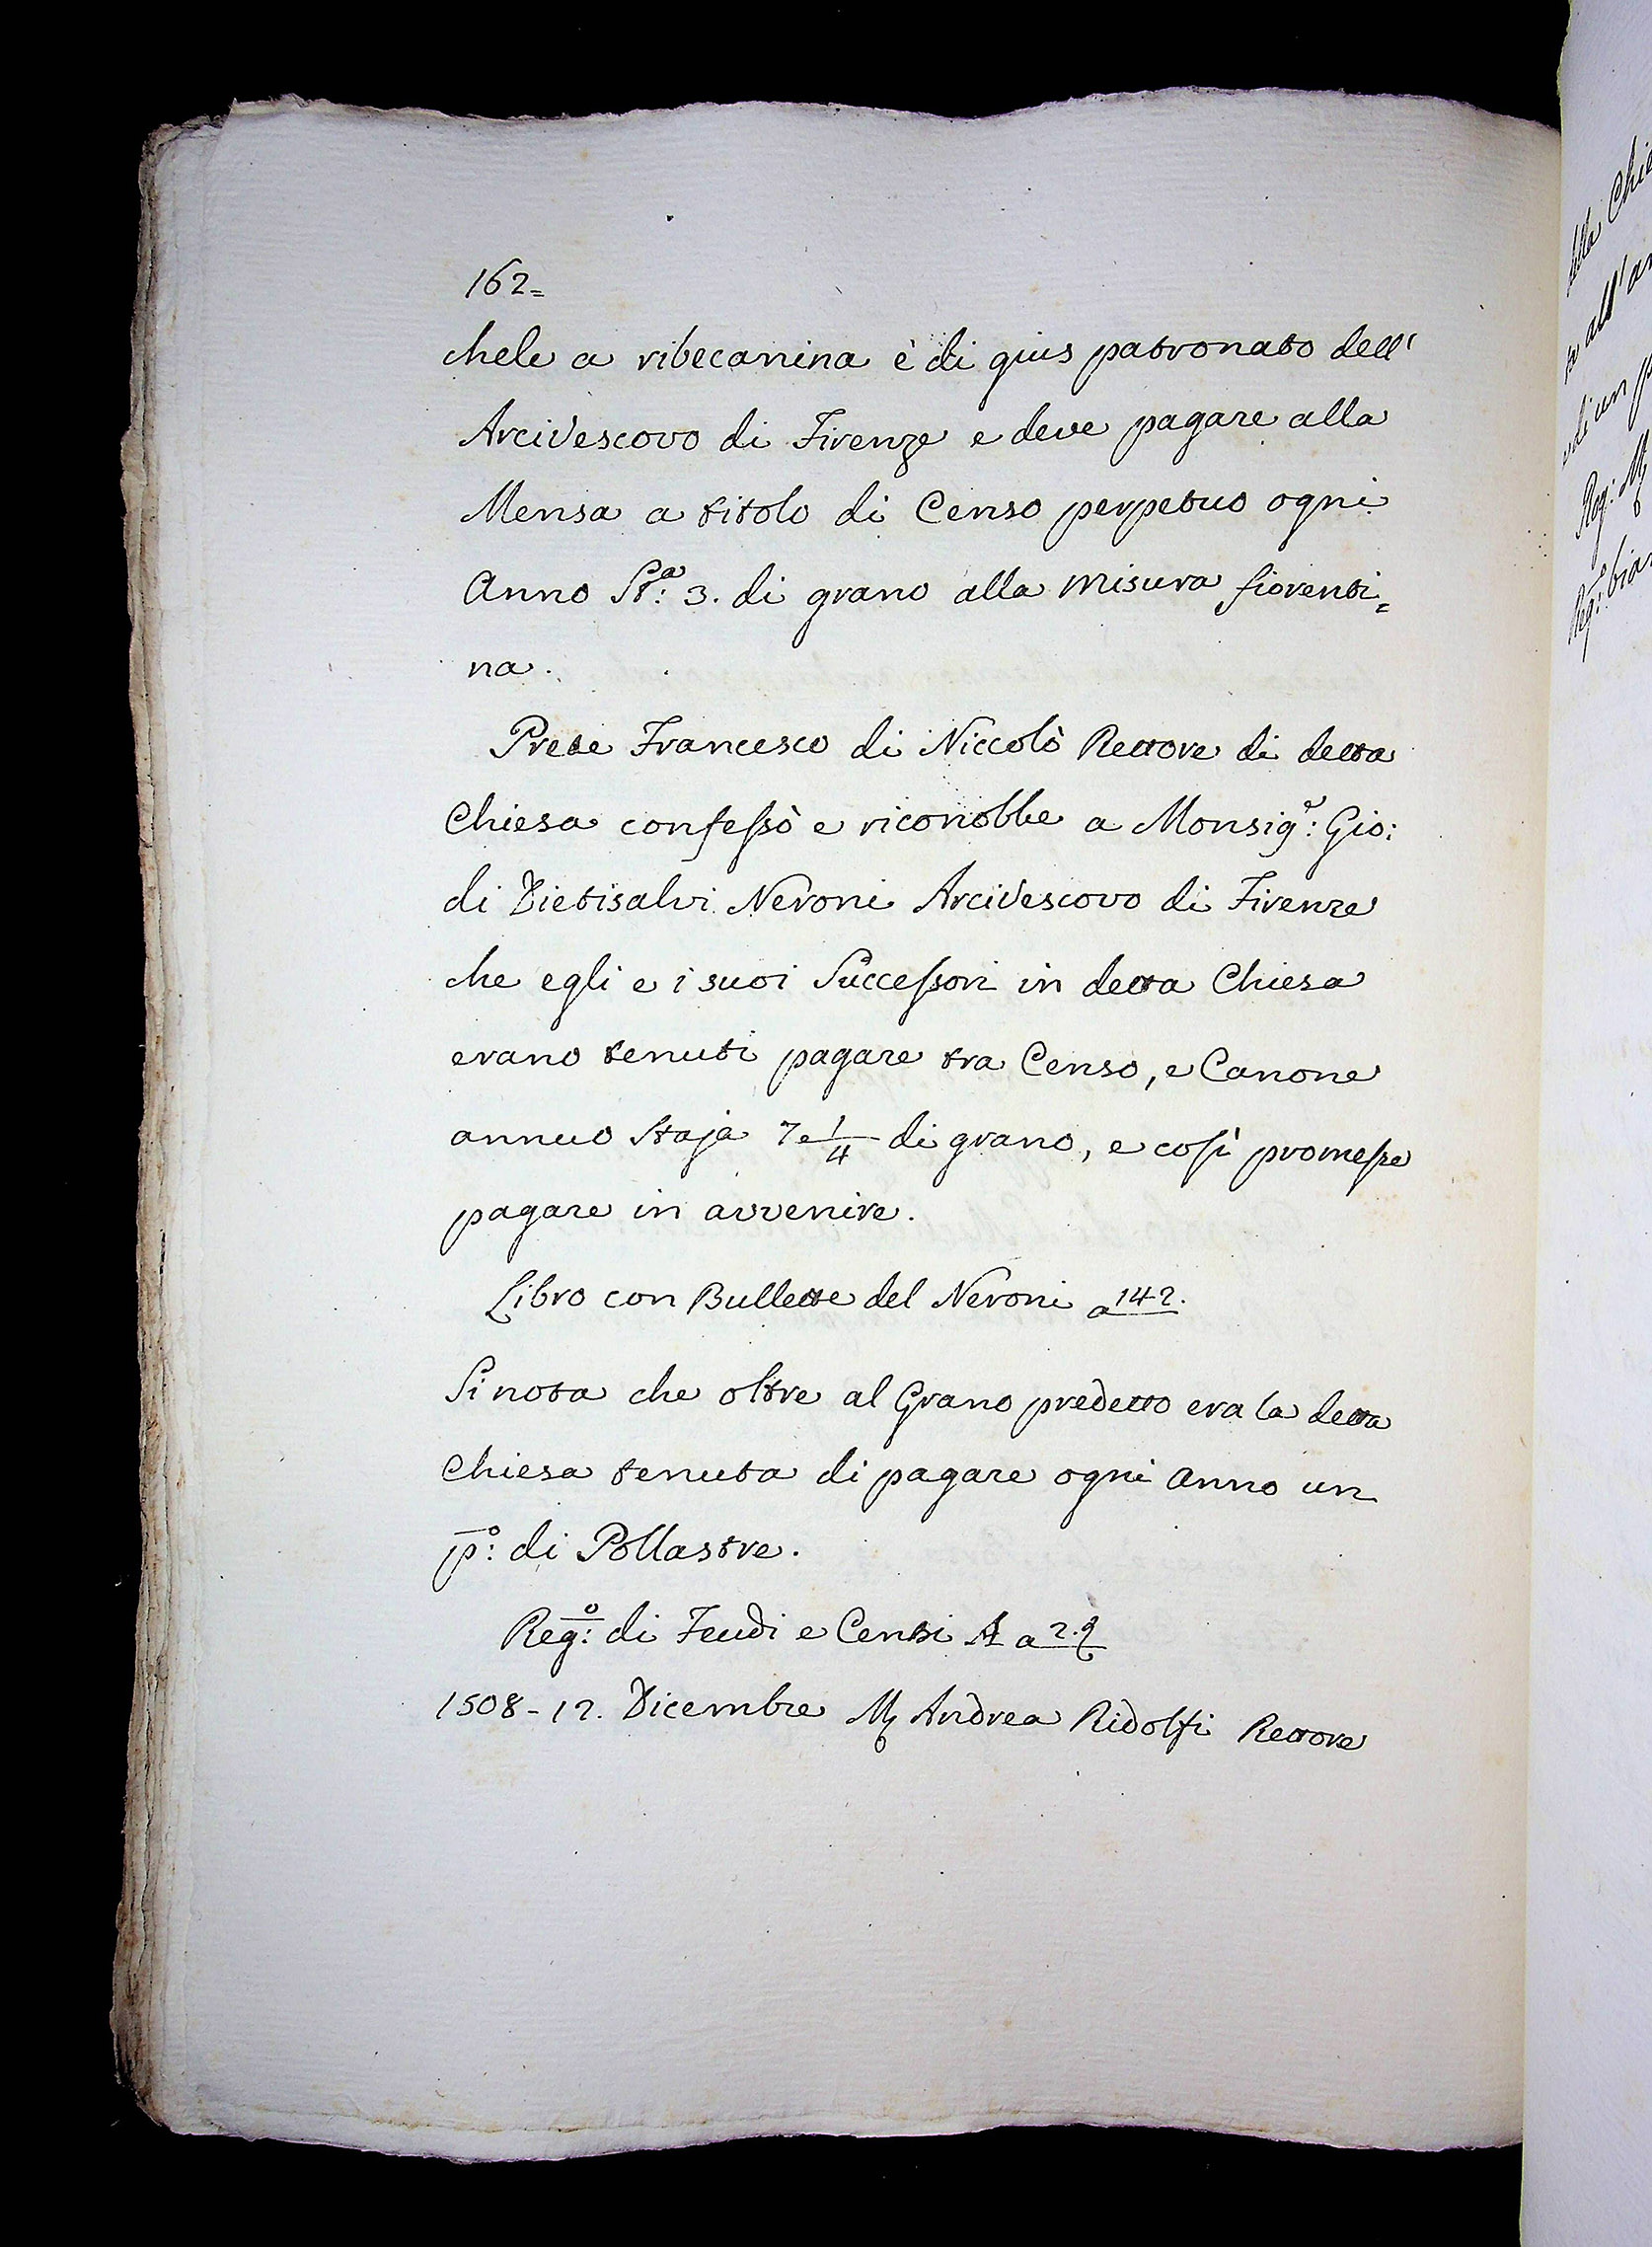 162=
chele a ribecanina è di gius patronato dell'
Arcivescovo di Firenze e deve pagare alla
Mensa a titolo di Censo perpetuo ogni
Anno St:ª 3. di grano alla misura fiorenti=
na.
Prete Francesco di Niccolò Rettore di detta
Chiesa confessò e riconobbe a Monsig:e Gio:
di Dietisalvi Neroni Arcivescovo di Firenze
che egli e i suoi Successori in detta Chiesa
erano tenuti pagare tra Censo, e Canone
annuo Staja 7 e 1/4 di grano, e così promesse
pagare in avvenire.
Libro con Bullette del Neroni a 142.
Si nota che oltre al Grano predetto era la detta
Chiesa tenuta di pagare ogni Anno un
p:º di Pollastre.
Reg:º di Feudi e Censi A a 29
1508 - 12. Dicembre M Andrea Ridolfi Rettore
della Chie
all'an
di un p
Reg: M
Reg:º bia